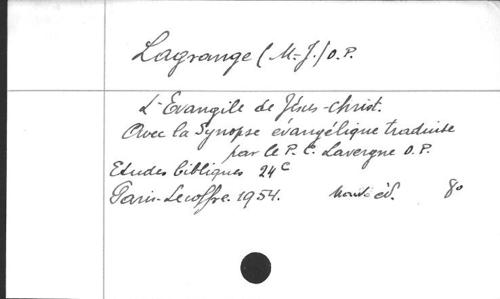 Lagrange (M.-J.) O.P.
L'Evangile de Jésus-Christ.
Avec la Synopse évangélique traduite
par le P. C. Lavergne O.P.
Etudes bibliques 24c
Paris-Lecoffre. 1954. Nouv. éd. 8o